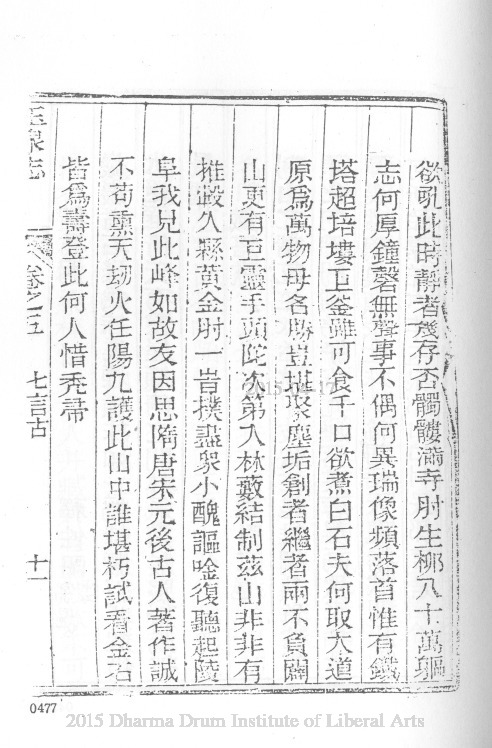 欲吼此時靜者幾存否髑髏滿寺肘生柳八十萬軀
志何厚鐘磬無聲事不偶何異瑞像頻落首惟有鐵
塔超培塿工釜雖可食千口欲煮白石夫何取大道
原爲萬物母名勝豈堪聚塵垢創者繼者兩不負關
山更有巨靈手頭陀次第入林藪結制茲山非非有
推轂久縣黃金肘一岧撲盡眾小醜謳唫復聽起陵
阜我兄此峰如故友因思隋唐宋元後古人著作誠
不苟熏天劫火任陽九護此山中誰堪朽試看金石
皆爲壽登此何人惜禿帚
玉泉志
卷之五
七言古
十一
0477
2015 Dharma Drum Institute of Liberal Arts